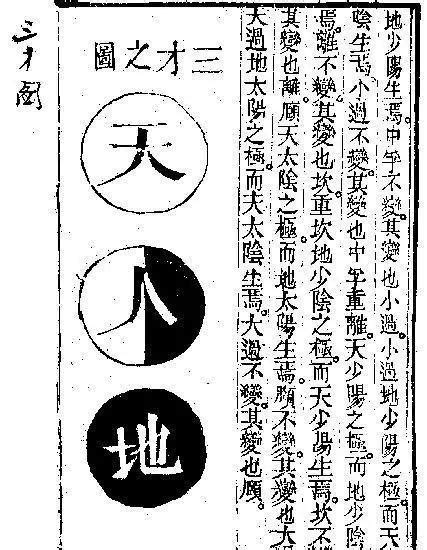 地少陽生焉。中孚不變。其變也小過。小過地少陽之極。而天
陰生焉。小過不變。其變也中孚。重離天少陽之極。而地少陰
焉。離不變。其變也坎。重坎地少陰之極。而天少陽生焉。坎不
其變也離。頤天太陰之極。而地太陽生焉。頤不變。其變也大
大過地太陽之極。而天太陰生焉。大過不變。其變也頤。
三才之圖
天
人
地
三才图